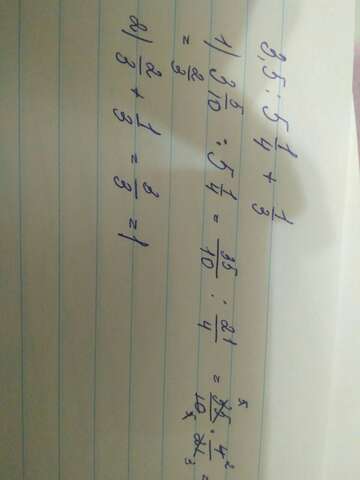 3,5 : 5 1/4 + 1/3
1) 3 5/10 : 5 1/4 = 35/10 : 21/4 = 35/10 · 4/21 =
= 2/3
2) 2/3 + 1/3 = 3/3 = 1